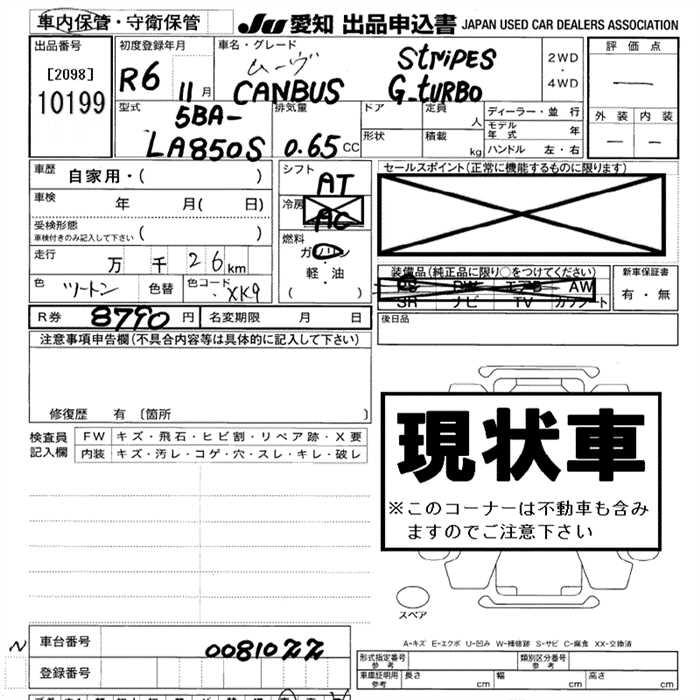 車内保管・守衛保管
JU 愛知 出品申込書 JAPAN USED CAR DEALERS ASSOCIATION
出品番号
[2098]
10199
初度登録年月
R6 11月
車名・グレード
ムーヴ
CANBUS
STRIPES
G_TURBO
2WD
・
4WD
評価点
—
外装 内装
— —
型式
5BA-
LA850S
排気量
0.65 CC
ドア
形状
定員 人
積載 kg
ディーラー・並行
モデル年式 年
ハンドル 左・右
車歴 自家用・( )
車検 年 月( 日)
受検形態
車検付きのみ記入して下さい ( )
走行 万 千 26 km
色 ツートン 色替 色コード XK9
シフト
AT
冷房
AC
燃料
ガソリン
・
軽・油
( )
セールスポイント(正常に機能するものに限ります)
装備品(純正品に限り○をつけてください)
PS PW エアB AW
SR ナビ TV カワシート
新車保証書
有・無
R券 8790 円 名変期限 月 日
後日品
注意事項申告欄(不具合内容等は具体的に記入して下さい)
修復歴 有 〔箇所 〕
検査員
記入欄
FW キズ・飛石・ヒビ割・リペア跡・X要
内装 キズ・汚レ・コゲ・穴・スレ・キレ・破レ
現状車
※このコーナーは不動車も含み
ますのでご注意下さい
スペア
A-キズ E-エクボ U-凹み W-補修跡 S-サビ C-腐食 XX-交換済
N
車台番号 0081022
登録番号
形式指定番号
参考
類別区分番号
参考
車庫証明用
参考
長さ cm 幅 cm 高さ cm